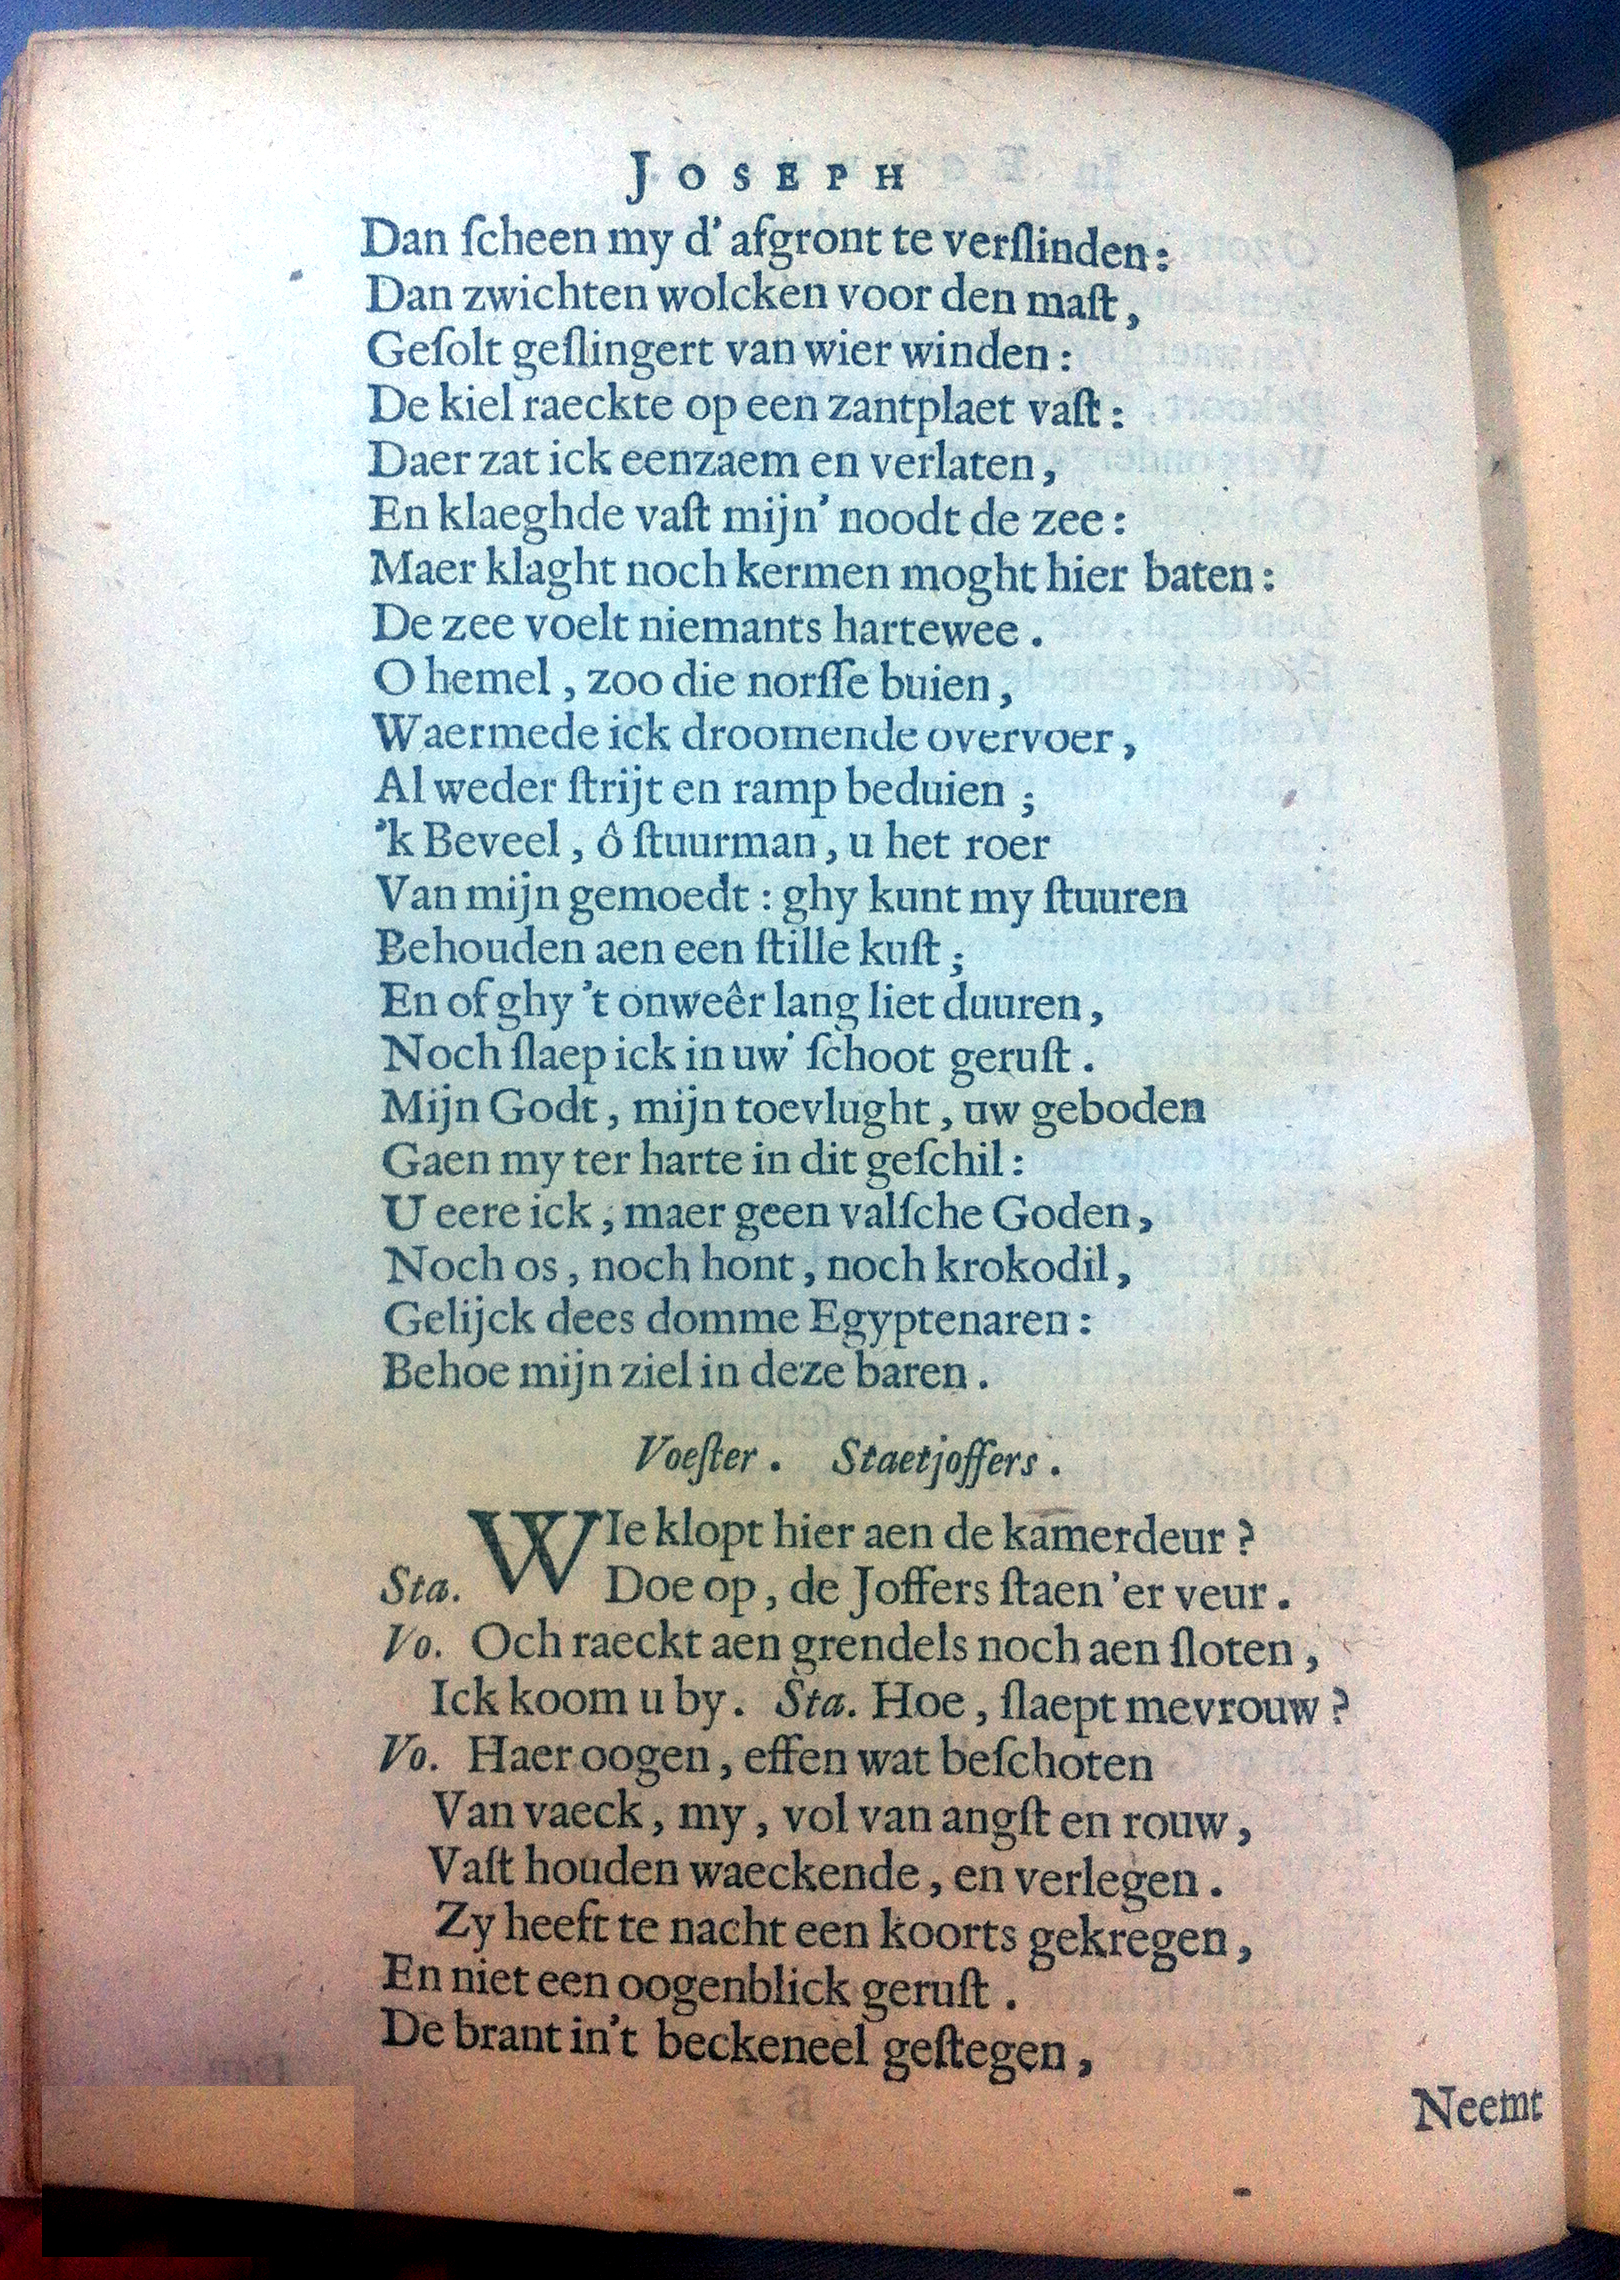 JOSEPH
Dan ſcheen my d' afgront te verſlinden:
Dan zwichten wolcken voor den maſt,
Geſolt geſlingert van wier winden:
De kiel raeckte op een zantplaet vaſt:
Daer zat ick eenzaem en verlaten,
En klaeghde vaſt mijn' noodt de zee:
Maer klaght noch kermen moght hier baten:
De zee voelt niemants hartewee.
O hemel, zoo die norſſe buien,
Waermede ick droomende overvoer,
Al weder ſtrijt en ramp beduien;
'k Beveel, ô ſtuurman, u het roer
Van mijn gemoedt: ghy kunt my ſtuuren
Behouden aen een ſtille kuſt;
En of ghy 't onweêr lang liet duuren,
Noch ſlaep ick in uw' ſchoot geruſt.
Mijn Godt, mijn toevlught, uw geboden
Gaen my ter harte in dit geſchil:
U eere ick, maer geen valſche Goden,
Noch os, noch hont, noch krokodil,
Gelijck dees domme Egyptenaren:
Behoe mijn ziel in deze baren.
Voeſter. Staetjoffers.
WIe klopt hier aen de kamerdeur?
Sta. Doe op, de Joffers ſtaen 'er veur.
Vo. Och raeckt aen grendels noch aen ſloten,
Ick koom u by. Sta. Hoe, ſlaept mevrouw?
Vo. Haer oogen, effen wat beſchoten
Van vaeck, my, vol van angſt en rouw,
Vaſt houden waeckende, en verlegen.
Zy heeft te nacht een koorts gekregen,
En niet een oogenblick geruſt.
De brant in't beckeneel geſtegen,
Neemt